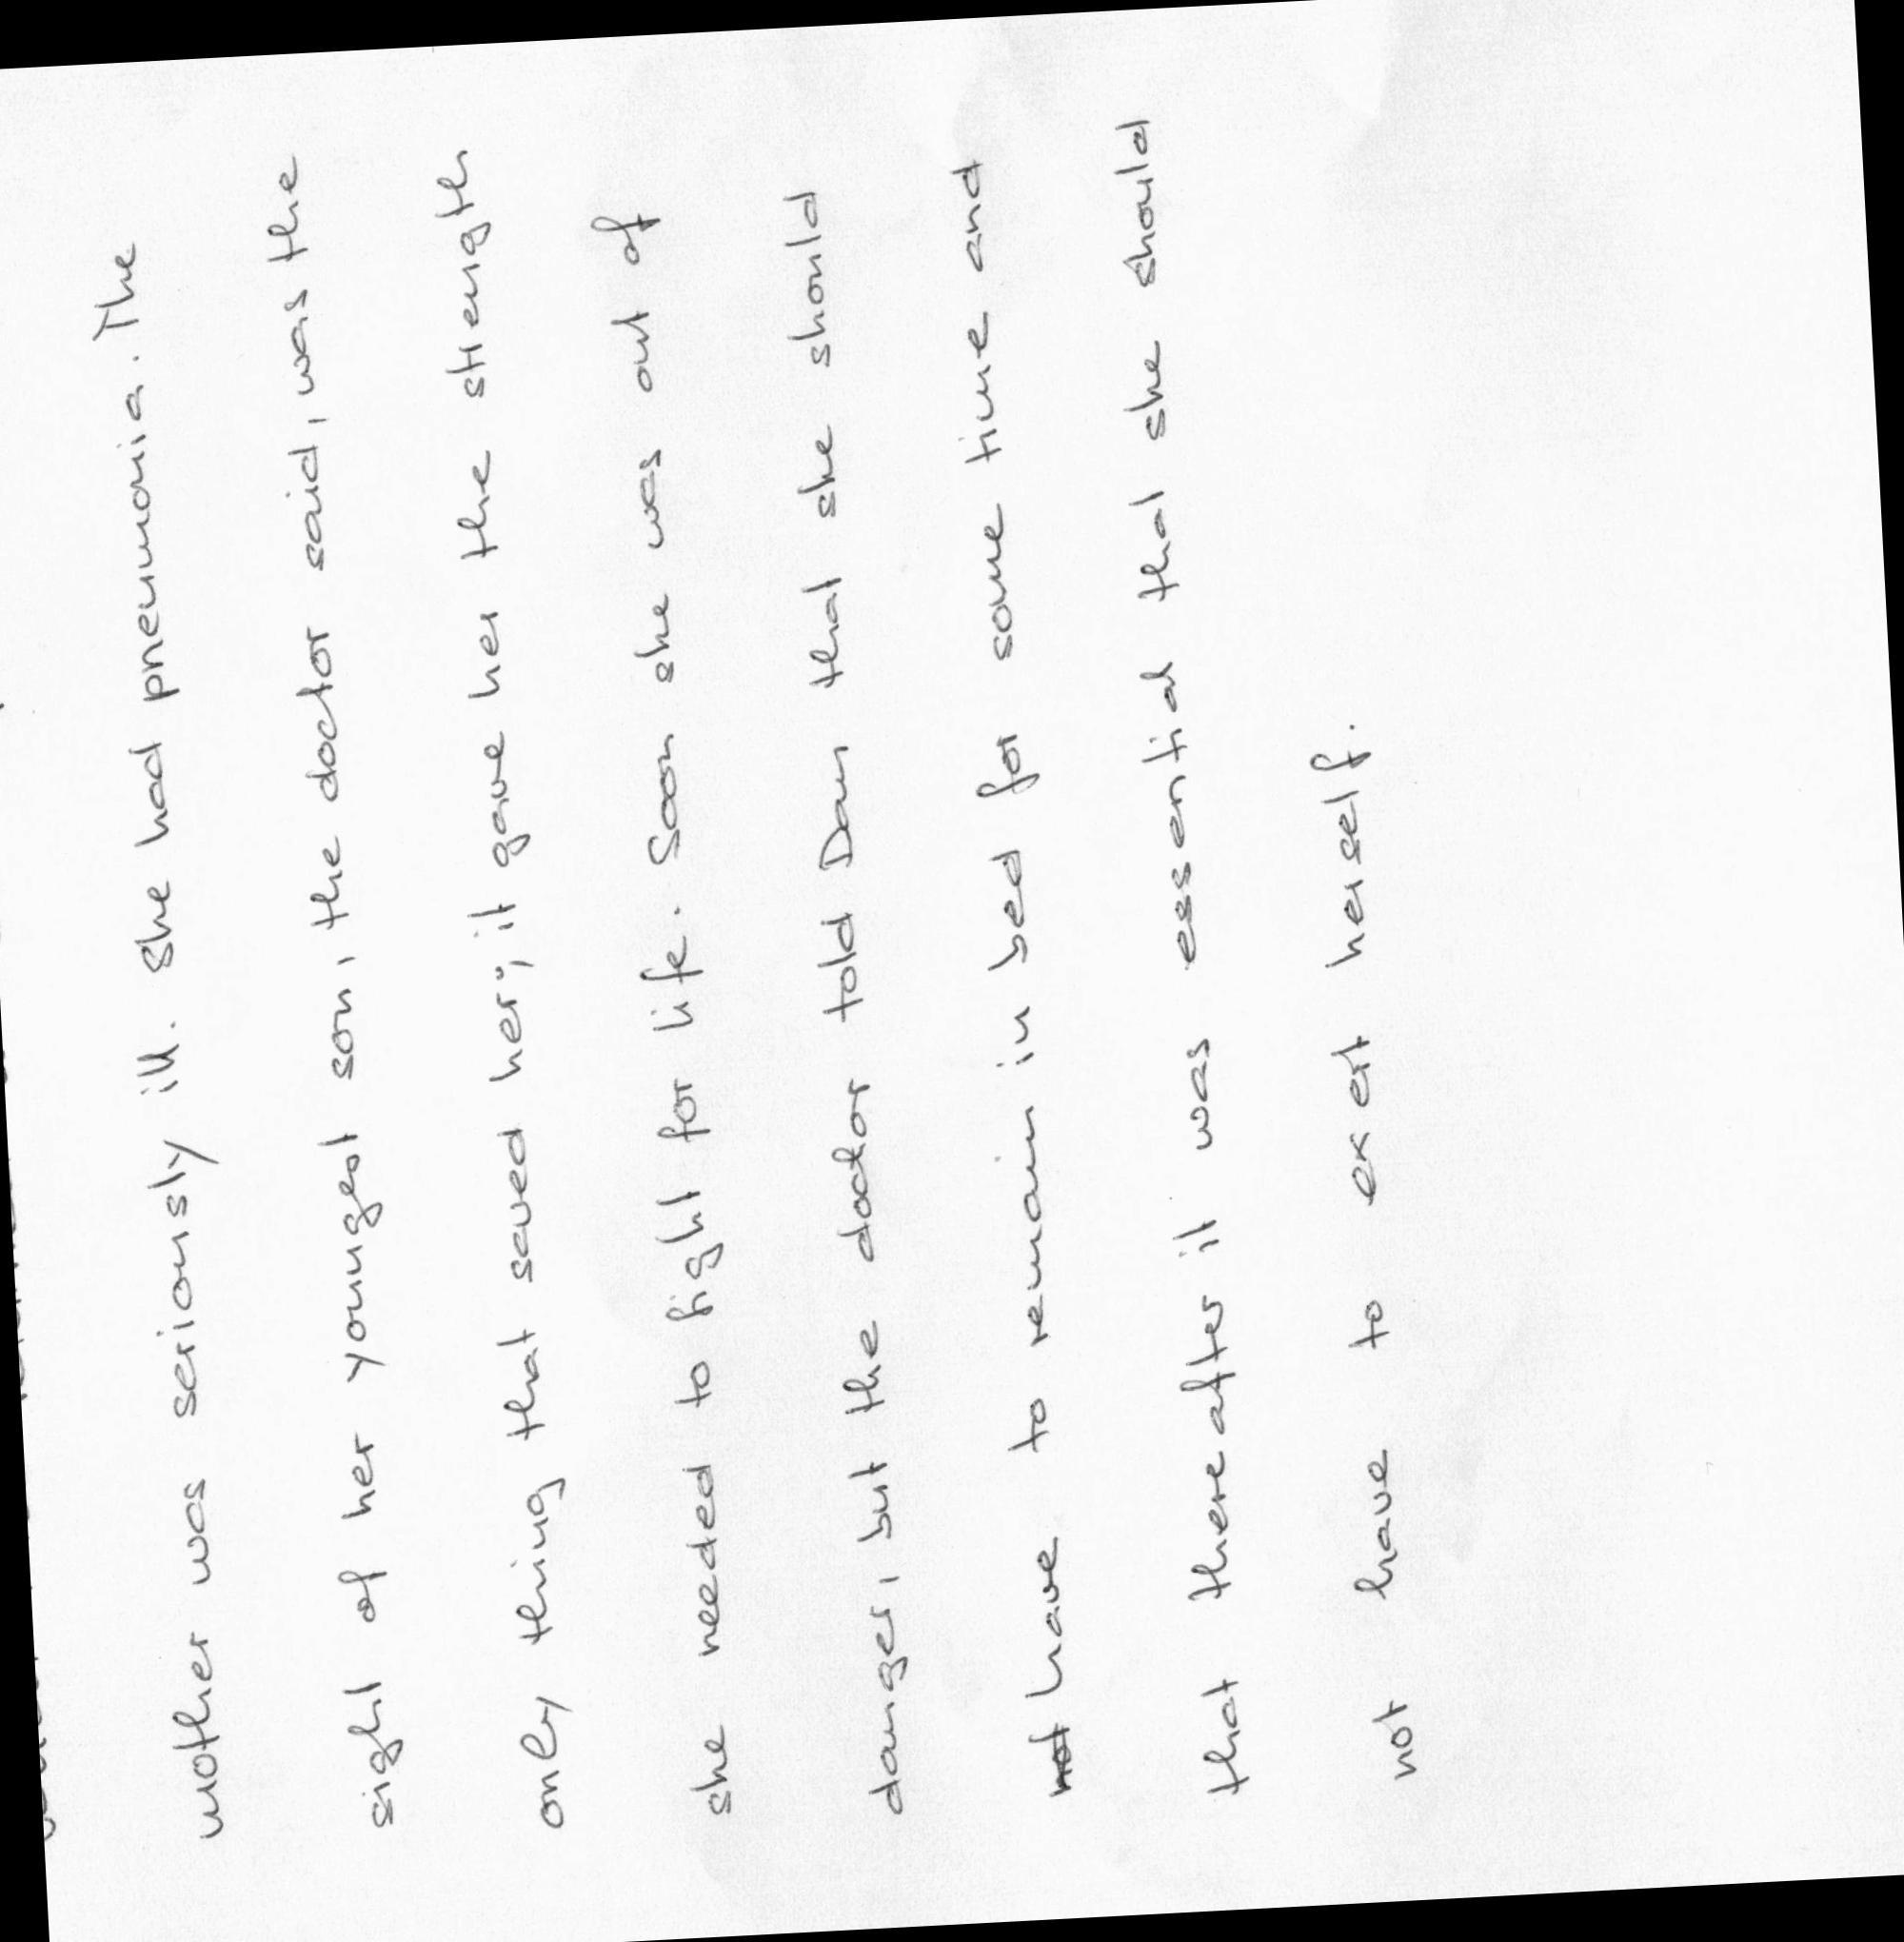 mother was seriously ill. She had pneumonia. The
sight of her youngest son, the doctor said, was the
only thing that saved her; it gave her the strength
she needed to fight for life. Soon she was out of
danger, but the doctor told Dan that she should
have to remain in bed for some time and
that thereafter it was essential that she should
not have to exert herself.